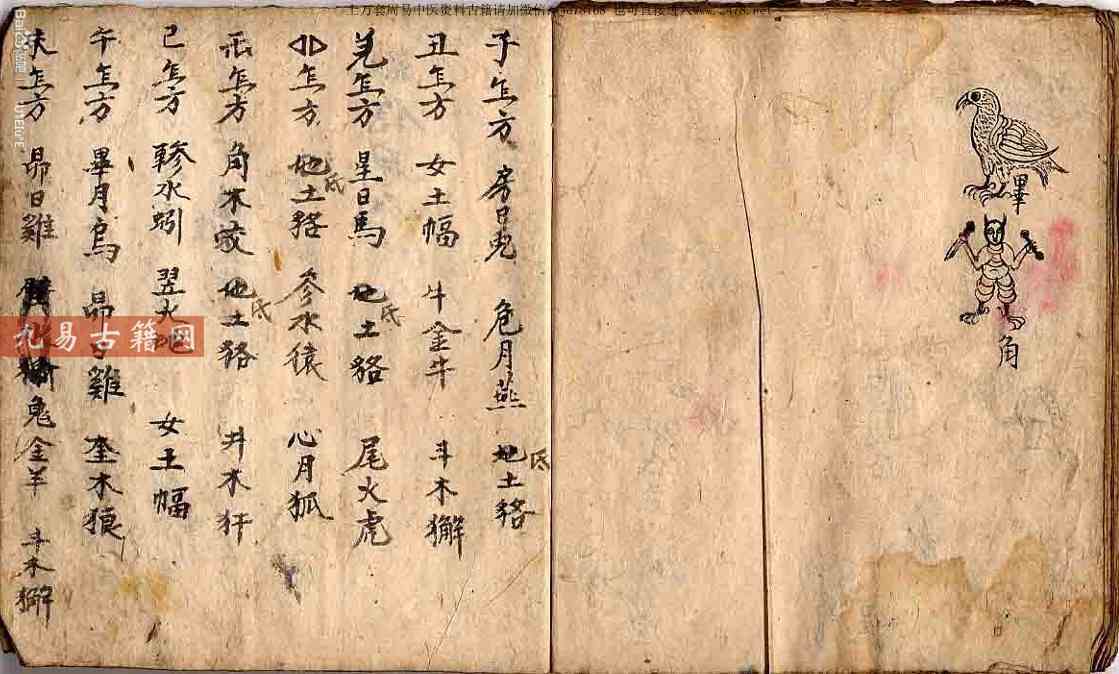 畢
角
子怎方 房日兎 危月燕 地土貉 氐
丑怎方 女土幅 牛金牛 斗木獬
怎方 星日馬 地土貉 氐 尾火虎
卯怎方 地土貉 氐 參水猿 心月狐
怎方 角木 地土貉 氐 井木犴
巳怎方 軫水蚓 翌火 女土幅
午怎方 畢月烏 昴日雞 奎木狼
怎方 昴日雞 鬼金羊 斗木獬
九易古籍网